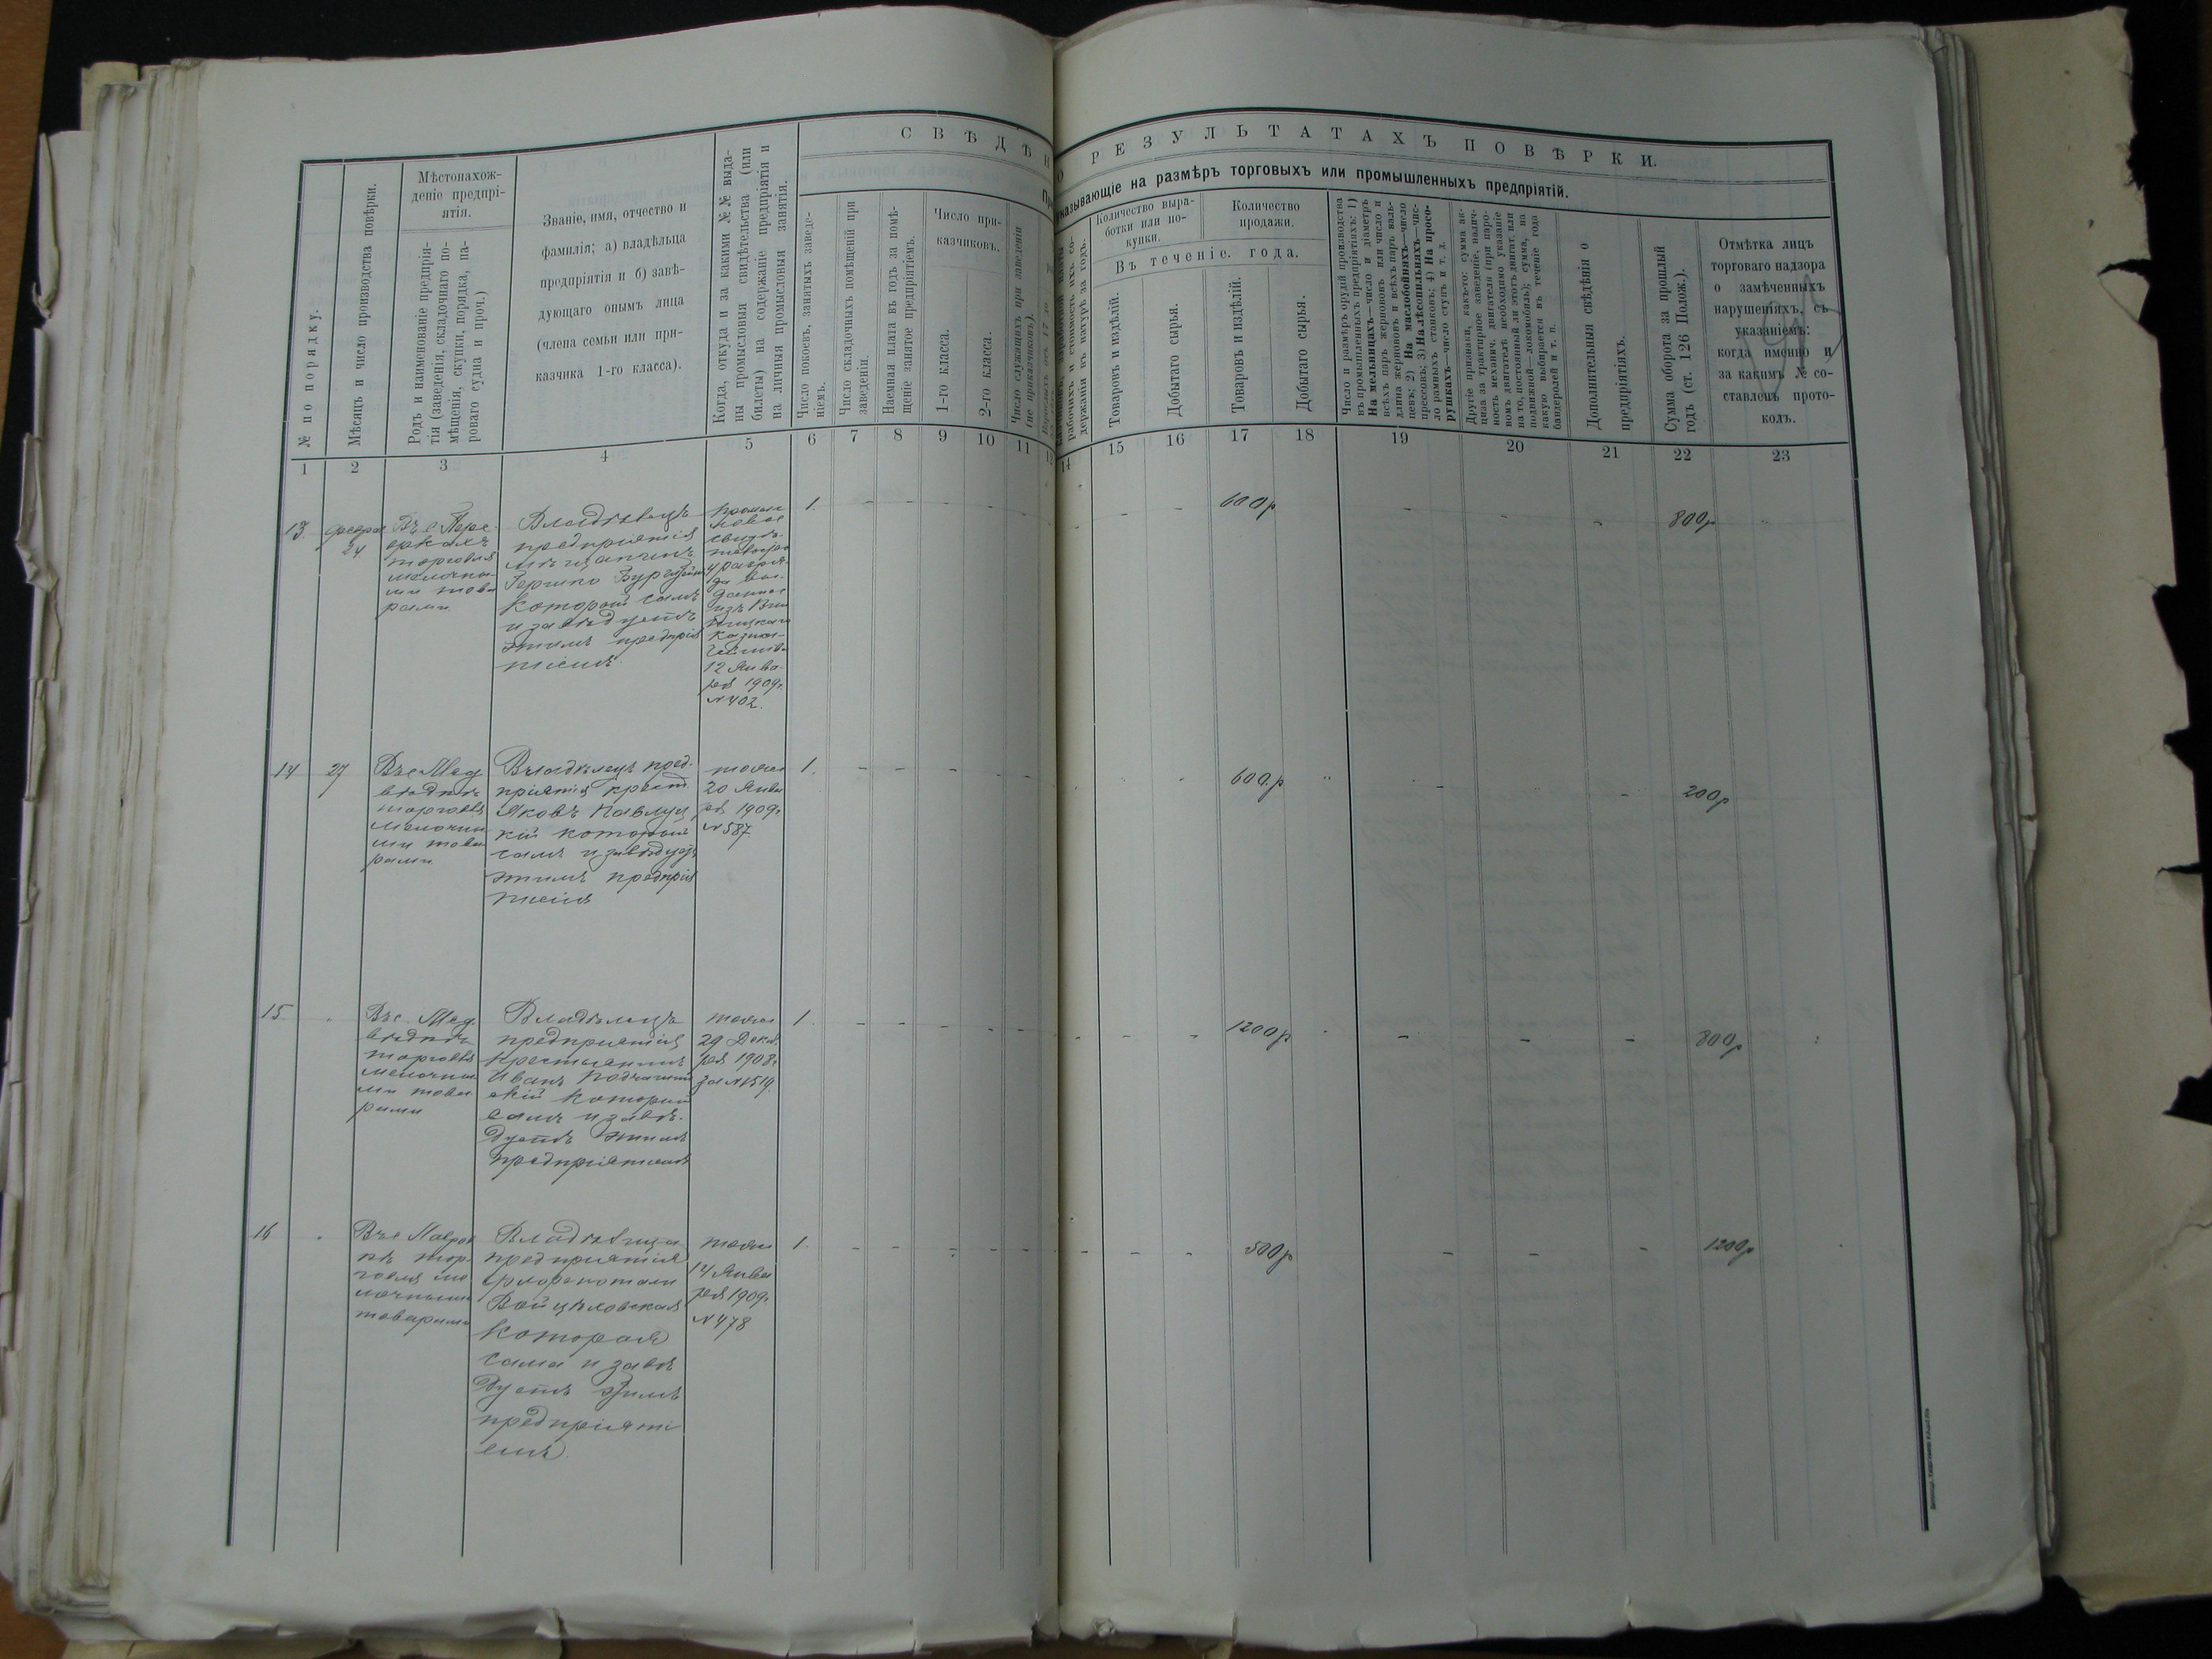 СВѢДѢН
О РЕЗУЛЬТАТАХЪ ПОВѢРКИ.
казывающіе на размѣръ торговыхъ или промышленныхъ предпріятій.
№ по порядку.
Мѣсяцъ и число производства повѣрки.
Мѣстонахож-
деніе предпрі-
ятія.
Родъ и наименованіе предпрія-
тія (заведенія, складочнаго по-
мѣщенія, скупки, порядка, па-
роваго судна и проч.)
Званіе, имя, отчество и
фамилія; а) владѣльца
предпріятія и б) завѣ-
дующаго онымъ лица
(члена семьи или при-
казчика 1-го класса).
Когда, откуда и за какими №№ выда-
ны промысловыя свидѣтельства (или
билеты) на содержаніе предпріятія и
на личныя промысловыя занятія.
Число покоевъ, занятыхъ заведе-
ніемъ.
Число складочныхъ помѣщеній при
заведеніи.
Наемная плата въ годъ за помѣ-
щеніе занятое предпріятіемъ.
Число при-
казчиковъ.
1-го класса.
2-го класса.
Число служащихъ при заведеніи
(не приказчиковъ).
рабочихъ и стоимость ихъ со-
держанія въ натурѣ за годъ.
Количество выра-
ботки или по-
купки.
Количество
продажи.
Въ теченіе года.
Товаровъ и издѣлій.
Добытаго сырья.
Товаровъ и издѣлій.
Добытаго сырья.
Число и размѣръ орудій производства
въ промышленныхъ предпріятіяхъ: 1)
На мельницахъ—число и діаметръ
всѣхъ паръ жернововъ или число и
длина жернововъ и всѣхъ паръ валь-
цевъ; 2) На маслобойняхъ—число
прессовъ; 3) На лѣсопильняхъ—чис-
ло рамныхъ станковъ; 4) На просо-
рушкахъ—число ступъ и т. д.
Другіе признаки, какъ-то: сумма ак-
циза за трактирное заведеніе, налич-
ность механич. двигателя (при паро-
вомъ двигателѣ необходимо указаніе
на то, постоянный ли этотъ двигат. или
подвижной—локомобиль); сумма, на
какую выбирается въ теченіе года
бандеролей и т. п.
Дополнительныя свѣдѣнія о
предпріятіяхъ.
Сумма оборота за прошлый
годъ (ст. 126 Полож.).
Отмѣтка лицъ
торговаго надзора
о замѣченныхъ
нарушеніяхъ, съ
указаніемъ:
когда именно и
за какимъ № со-
ставленъ прото-
колъ.
1 2 3 4 5 6 7 8 9 10 11 14 15 16 17 18 19 20 21 22 23
13.
24.
Въ с.
торговля
мелочны-
ми това
рами.
Владѣлецъ
предпріятія
мѣщанинъ
который самъ
и завѣдуетъ
этимъ предпрія
тіемъ.
промыс
ловое
свидѣ-
4 разря-
да вы-
данное
изъ
Казна-
12 Янва-
ря 1909г.
№402.
1. 600р 800р
14 27
Въ с Мед
вѣдкѣ
торговля
мелочны
ми това
рами
Владѣлецъ пред-
пріятія крест.
Яковъ Павлуц
кій который
самъ и завѣдуетъ
этимъ предпрія
тіемъ
тоже
20 Янва
ря 1909г
№587.
1. 600.р 200р
15
Въ с. Мед
вѣдкѣ
торговля
мелочны
ми това
рами
Владѣлецъ
предпріятія
крестьянинъ
Иванъ
скій который
самъ и завѣ-
дуетъ этимъ
предпріятіемъ
тоже
29 Декаб
ря 1908г
за №1519.
1 1200р 800р
16
Въ с
кѣ тор-
говля ме
лочными
товарами
Владѣлица
предпріятія
Войцѣховская
которая
сама и завѣ
дуетъ этимъ
предпріяті
емъ.
тоже
14 Янва
ря 1909г.
№478
1. 500р 1200р